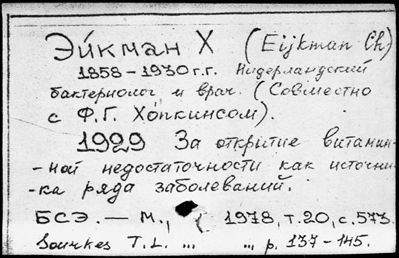 Эйкман Х (Eijkman Ch)
1858-1930 г.г. Нидерландский
бактериолог и врач. (Совместно
с Ф.Г. Хопкинсом).
1929 За открытие витамин-
-ной недостаточности как источни-
-ка ряда заболеваний.
БСЭ. — М., 1978, т. 20, с. 573.
Sourkes T.L. „ „ p. 137-145.